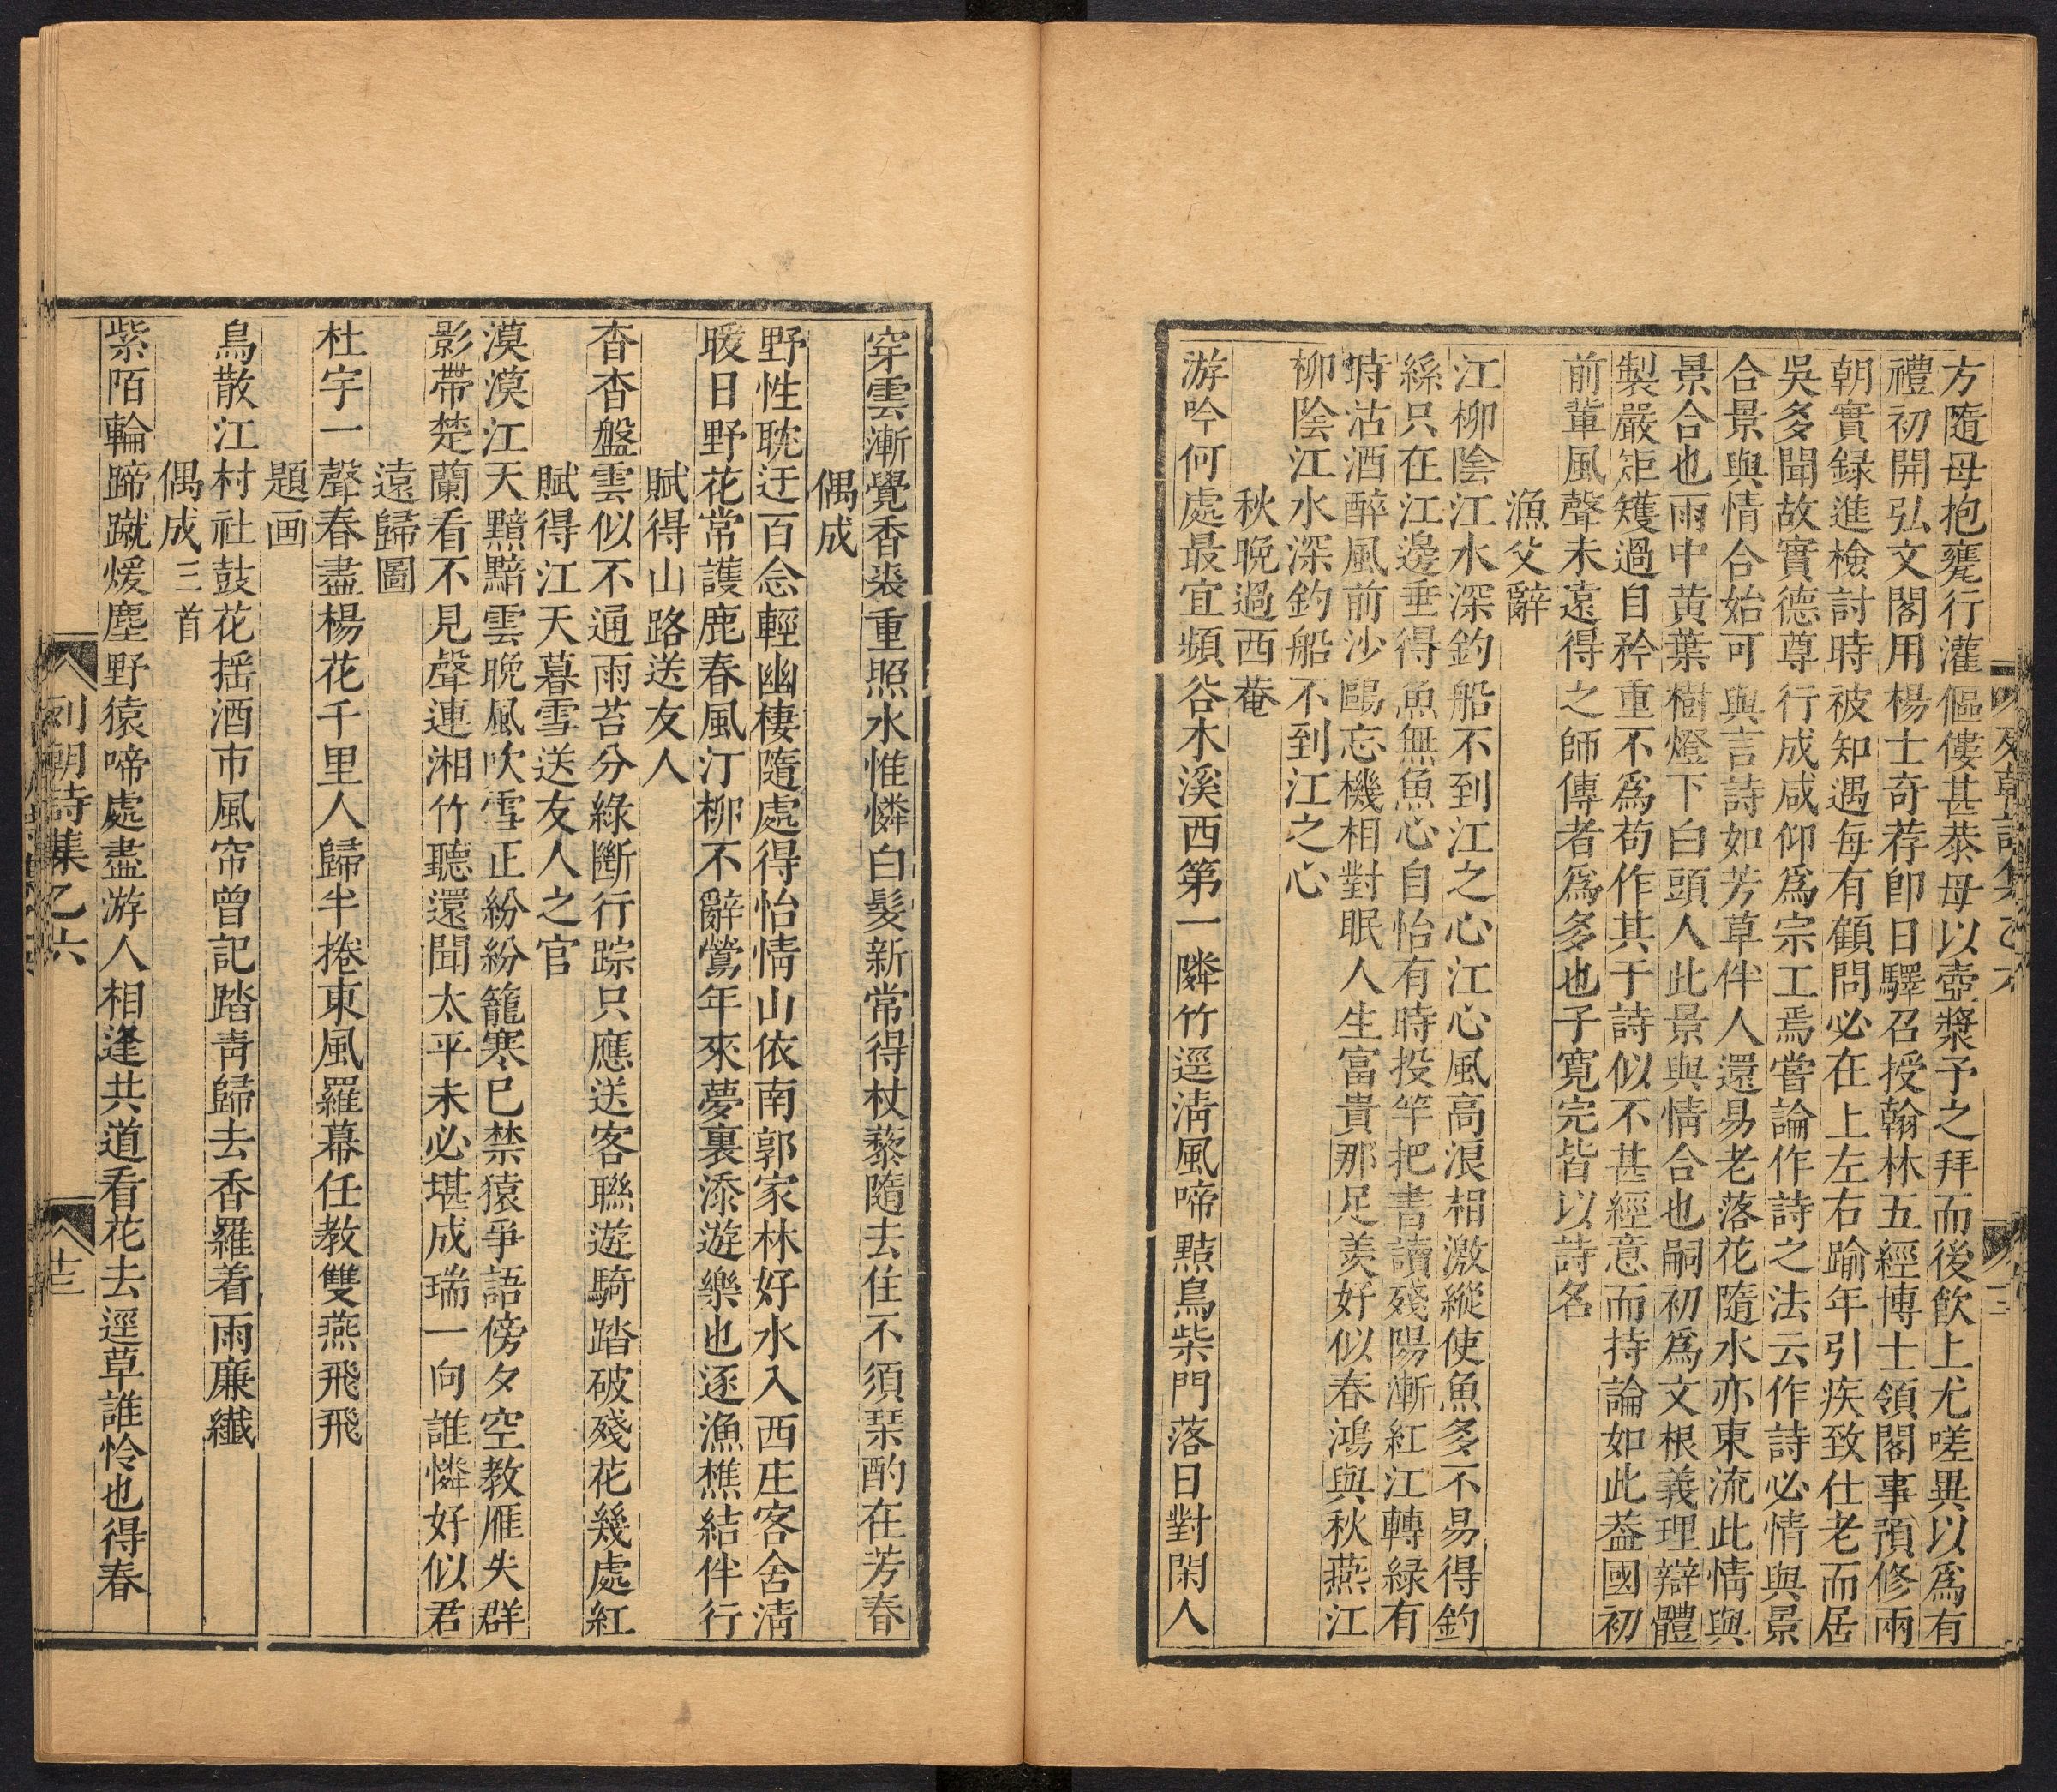 方隨母抱甕行灌傴僂甚恭母以壺漿予之拜而後飲上尤嗟異以爲有
禮初開弘文閣用楊士奇荐卽日驛召授翰林五經博士領閣事預修兩
朝實録進檢討時被知遇每有顧問必在上左右踰年引疾致仕老而居
吳多聞故實德尊行成咸仰爲宗工焉嘗論作詩之法云作詩必情與景
合景與情合始可與言詩如芳草伴人還易老落花隨水亦東流此情與
景合也雨中黄葉樹燈下白頭人此景與情合也嗣初爲文根義理辯體
製嚴矩矱過自矜重不爲苟作其于詩似不甚經意而持論如此葢國初
前輩風聲未遠得之師傳者爲多也子寛完皆以詩名
漁父辭
江柳陰江水深釣船不到江之心江心風高浪相激縱使魚多不易得釣
絲只在江邊垂得魚無魚心自怡有時投竿把書讀殘陽漸紅江轉緑有
時沽酒醉風前沙鷗忘機相對眠人生富貴那足羨好似春鴻與秋燕江
柳陰江水深釣船不到江之心
秋晩過西菴
游吟何處最宜頻谷木溪西第一隣竹逕淸風啼㸃鳥柴門落日對閑人
穿雲漸覺香裘重照水惟憐白髮新常得杖藜隨去住不須琹酌在芳春
偶成
野性耽迂百念輕幽棲隨處得怡情山依南郭家林好水入西庄客舍淸
暖日野花常護鹿春風汀柳不辭鶯年來夢裏添遊樂也逐漁樵結伴行
賦得山路送友人
杳杳盤雲似不通雨苔分綠斷行踪只應送客聯遊騎踏破殘花幾處紅
賦得江天暮雪送友人之官
漠漠江天黯黯雲晩風吹雪正紛紛籠寒巳禁猿爭語傍夕空教雁失群
影帶楚蘭看不見聲連湘竹聽還聞太平未必堪成瑞一向誰憐好似君
遠歸圖
杜宇一聲春盡楊花千里人歸半捲東風羅幕任教雙燕飛飛
題画
鳥散江村社鼓花摇酒市風帘曾記踏靑歸去香羅着雨廉纖
偶成三首
紫陌輪蹄蹴煖塵野猿啼處盡游人相逢共道看花去逕草誰怜也得春
列朝詩集乙六